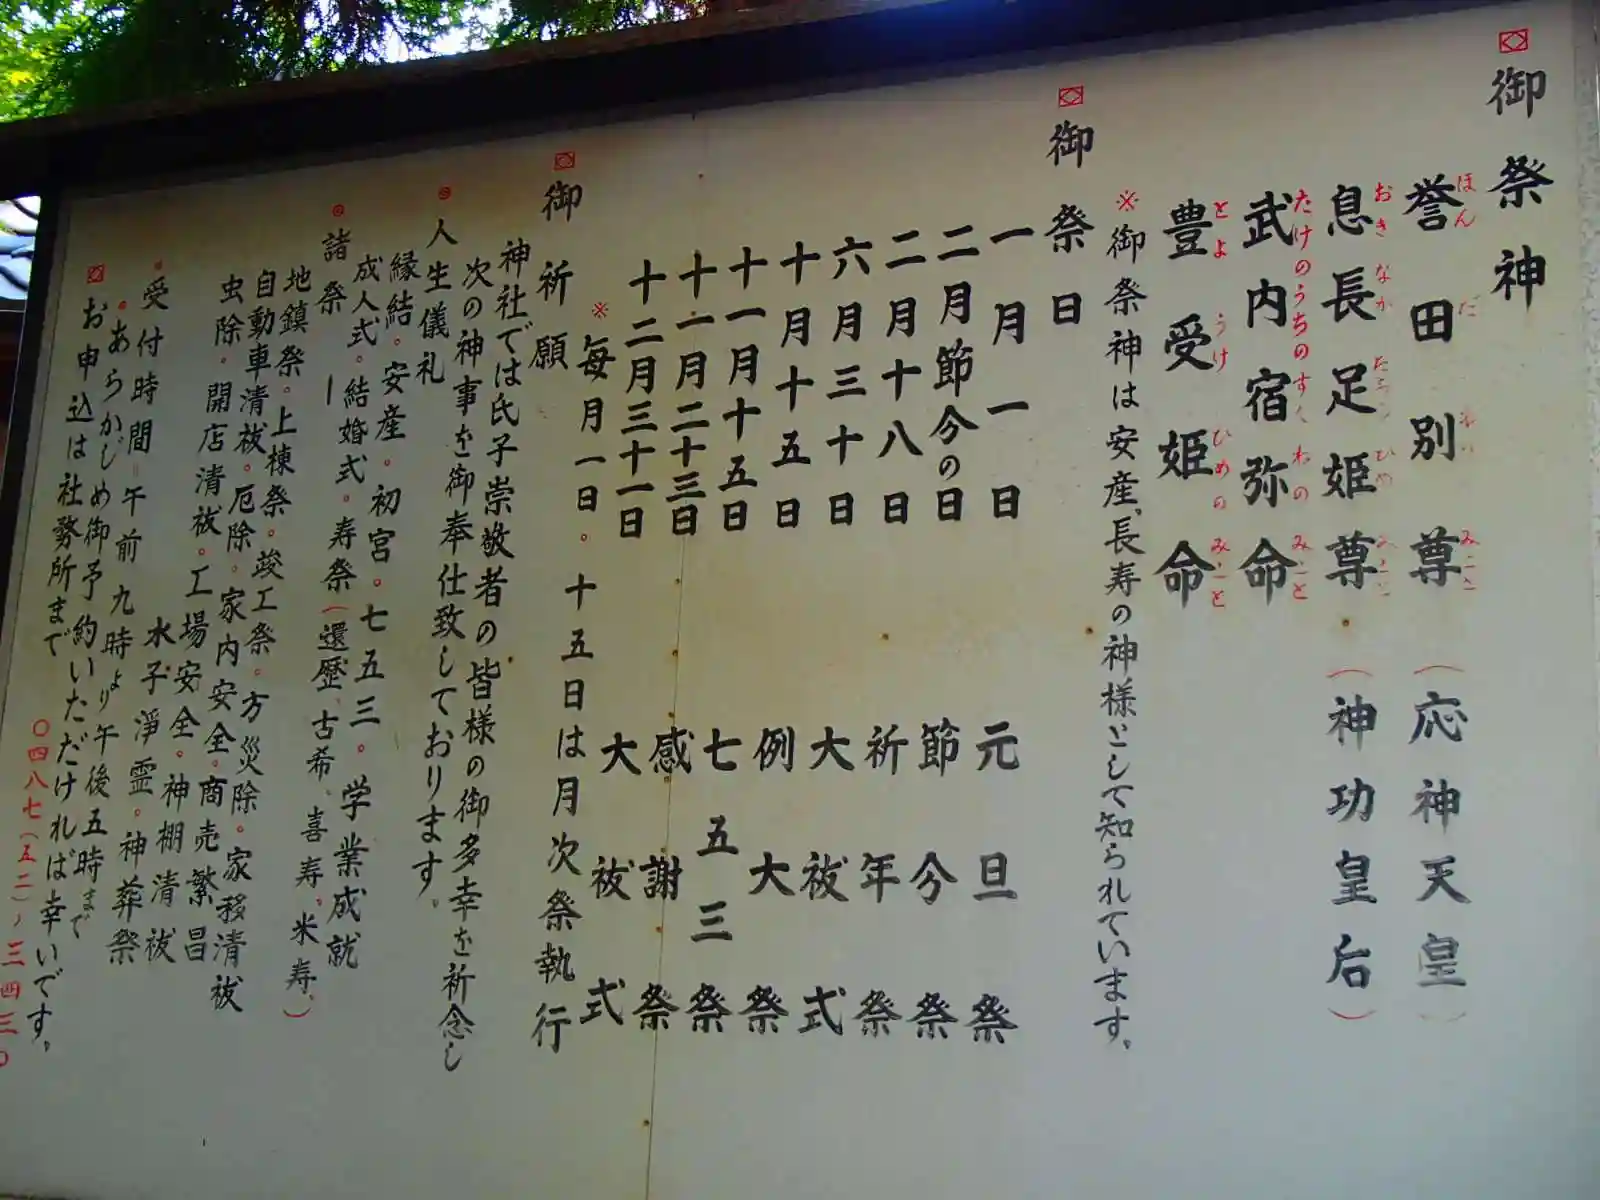 御祭神
誉田別尊（応神天皇）
息長足姫尊（神功皇后）
武内宿弥命
豊受姫命
※御祭神は安産、長寿の神様として知られています。
御祭日
一月一日 元旦祭
二月節分の日 節分祭
二月十八日 祈年祭
六月三十日 大祓式
十月十五日 例大祭
十一月十五日 七五三祭
十一月二十三日 感謝祭
十二月三十一日 大祓式
※毎月一日。十五日は月次祭執行
御祈願
神社では氏子崇敬者の皆様の御多幸を祈念し
次の神事を御奉仕致しております。
人生儀礼
縁結。安産。初宮。七五三。学業成就
成人式。結婚式。寿祭（還歴、古希、喜寿。米寿、）
諸祭
地鎮祭。上棟祭。竣工祭。方災除。家移清祓
自動車清祓。厄除。家内安全。商売繁昌
虫除。開店清祓。工場安全。神棚清祓
水子浄霊。神葬祭
受付時間＝午前九時より午後五時まで
。あらかじめ御予約いただければ幸いです。
お申込は社務所まで
〇四八七（五二）ノ三四三〇